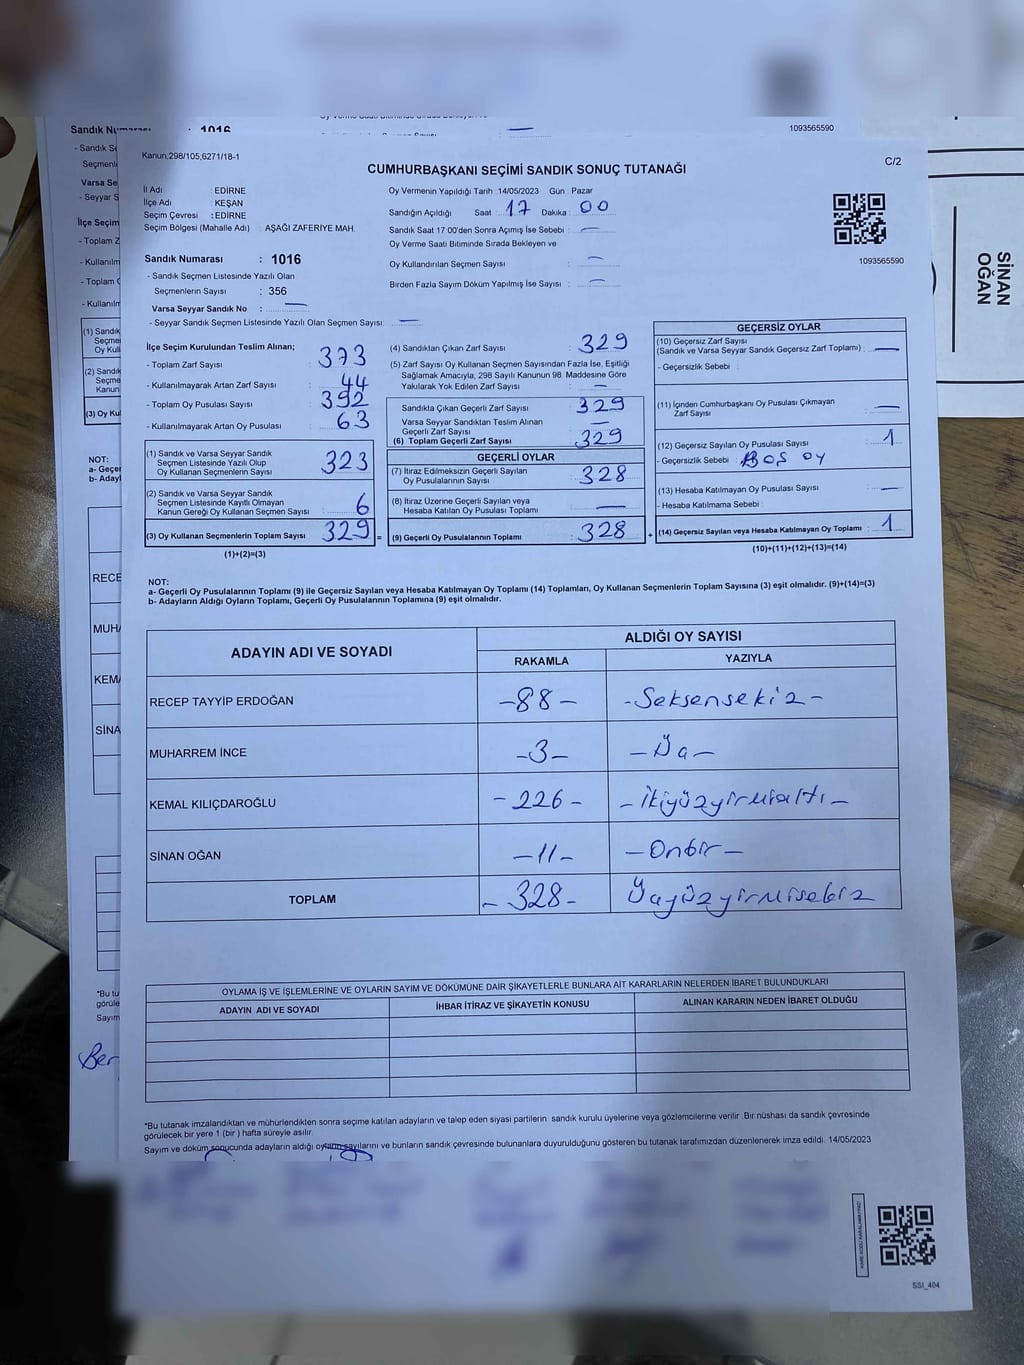 1093565590
Sandık Numarası : 1016
Kanun;298/105;6271/18-1
C/2
CUMHURBAŞKANI SEÇİMİ SANDIK SONUÇ TUTANAĞI
İl Adı : EDİRNE
İlçe Adı : KEŞAN
Seçim Çevresi : EDİRNE
Seçim Bölgesi (Mahalle Adı) : AŞAĞI ZAFERİYE MAH.
Oy Vermenin Yapıldığı Tarih :14/05/2023 Gün : Pazar
Sandığın Açıldığı Saat : 17 Dakika : 00
Sandık Saat 17:00'den Sonra Açımış İse Sebebi : —
Oy Verme Saati Bitiminde Sırada Bekleyen ve
Oy Kullandırılan Seçmen Sayısı : —
Birden Fazla Sayım Döküm Yapılmış İse Sayısı : —
1093565590
Sandık Numarası : 1016
- Sandık Seçmen Listesinde Yazılı Olan
Seçmenlerin Sayısı : 356
Varsa Seyyar Sandık No : —
- Seyyar Sandık Seçmen Listesinde Yazılı Olan Seçmen Sayısı: —
İlçe Seçim Kurulundan Teslim Alınan;
- Toplam Zarf Sayısı : 373
- Kullanılmayarak Artan Zarf Sayısı : 44
- Toplam Oy Pusulası Sayısı : 392
- Kullanılmayarak Artan Oy Pusulası : 63
(1) Sandık ve Varsa Seyyar Sandık
Seçmen Listesinde Yazılı Olup
Oy Kullanan Seçmenlerin Sayısı : 323
(2) Sandık ve Varsa Seyyar Sandık
Seçmen Listesinde Kayıtlı Olmayan
Kanun Gereği Oy Kullanan Seçmen Sayısı : 6
(3) Oy Kullanan Seçmenlerin Toplam Sayısı : 329 =
(1)+(2)=(3)
(4) Sandıktan Çıkan Zarf Sayısı : 329
(5) Zarf Sayısı Oy Kullanan Seçmen Sayısından Fazla İse, Eşitliği
Sağlamak Amacıyla; 298 Sayılı Kanunun 98. Maddesine Göre
Yakılarak Yok Edilen Zarf Sayısı : —
Sandıkta Çıkan Geçerli Zarf Sayısı : 329
Varsa Seyyar Sandıktan Teslim Alınan
Geçerli Zarf Sayısı : —
(6) Toplam Geçerli Zarf Sayısı : 329
GEÇERLİ OYLAR
(7) İtiraz Edilmeksizin Geçerli Sayılan
Oy Pusulalarının Sayısı : 328
(8) İtiraz Üzerine Geçerli Sayılan veya
Hesaba Katılan Oy Pusulası Toplamı : —
(9) Geçerli Oy Pusulalarının Toplamı : 328 +
GEÇERSİZ OYLAR
(10) Geçersiz Zarf Sayısı
(Sandık ve Varsa Seyyar Sandık Geçersiz Zarf Toplamı) : —
- Geçersizlik Sebebi :
(11) İçinden Cumhurbaşkanı Oy Pusulası Çıkmayan
Zarf Sayısı : —
(12) Geçersiz Sayılan Oy Pusulası Sayısı : 1
- Geçersizlik Sebebi : BOŞ OY
(13) Hesaba Katılmayan Oy Pusulası Sayısı : —
- Hesaba Katılmama Sebebi :
(14) Geçersiz Sayılan veya Hesaba Katılmayan Oy Toplamı : 1
(10)+(11)+(12)+(13)=(14)
NOT:
a- Geçerli Oy Pusulalarının Toplamı (9) ile Geçersiz Sayılan veya Hesaba Katılmayan Oy Toplamı (14) Toplamları, Oy Kullanan Seçmenlerin Toplam Sayısına (3) eşit olmalıdır. (9)+(14)=(3)
b- Adayların Aldığı Oyların Toplamı, Geçerli Oy Pusulalarının Toplamına (9) eşit olmalıdır.
ADAYIN ADI VE SOYADI ALDIĞI OY SAYISI
RAKAMLA YAZIYLA
RECEP TAYYİP ERDOĞAN -88- -Seksensekiz-
MUHARREM İNCE -3- -Üç-
KEMAL KILIÇDAROĞLU -226- -İkiyüzyirmialtı-
SİNAN OĞAN -11- -Onbir-
TOPLAM -328- Üçyüzyirmisekiz
OYLAMA İŞ VE İŞLEMLERİNE VE OYLARIN SAYIM VE DÖKÜMÜNE DAİR ŞİKAYETLERLE BUNLARA AİT KARARLARIN NELERDEN İBARET BULUNDUKLARI
ADAYIN ADI VE SOYADI İHBAR İTİRAZ VE ŞİKAYETİN KONUSU ALINAN KARARIN NEDEN İBARET OLDUĞU
*Bu tutanak imzalandıktan ve mühürlendikten sonra seçime katılan adayların ve talep eden siyasi partilerin sandık kurulu üyelerine veya gözlemcilerine verilir. Bir nüshası da sandık çevresinde
görülecek bir yere 1 (bir ) hafta süreyle asılır.
Sayım ve döküm sonucunda adayların aldığı oyların sayılarını ve bunların sandık çevresinde bulunanlara duyurulduğunu gösteren bu tutanak tarafımızdan düzenlenerek imza edildi. 14/05/2023
SSI_404
SİNAN
OĞAN